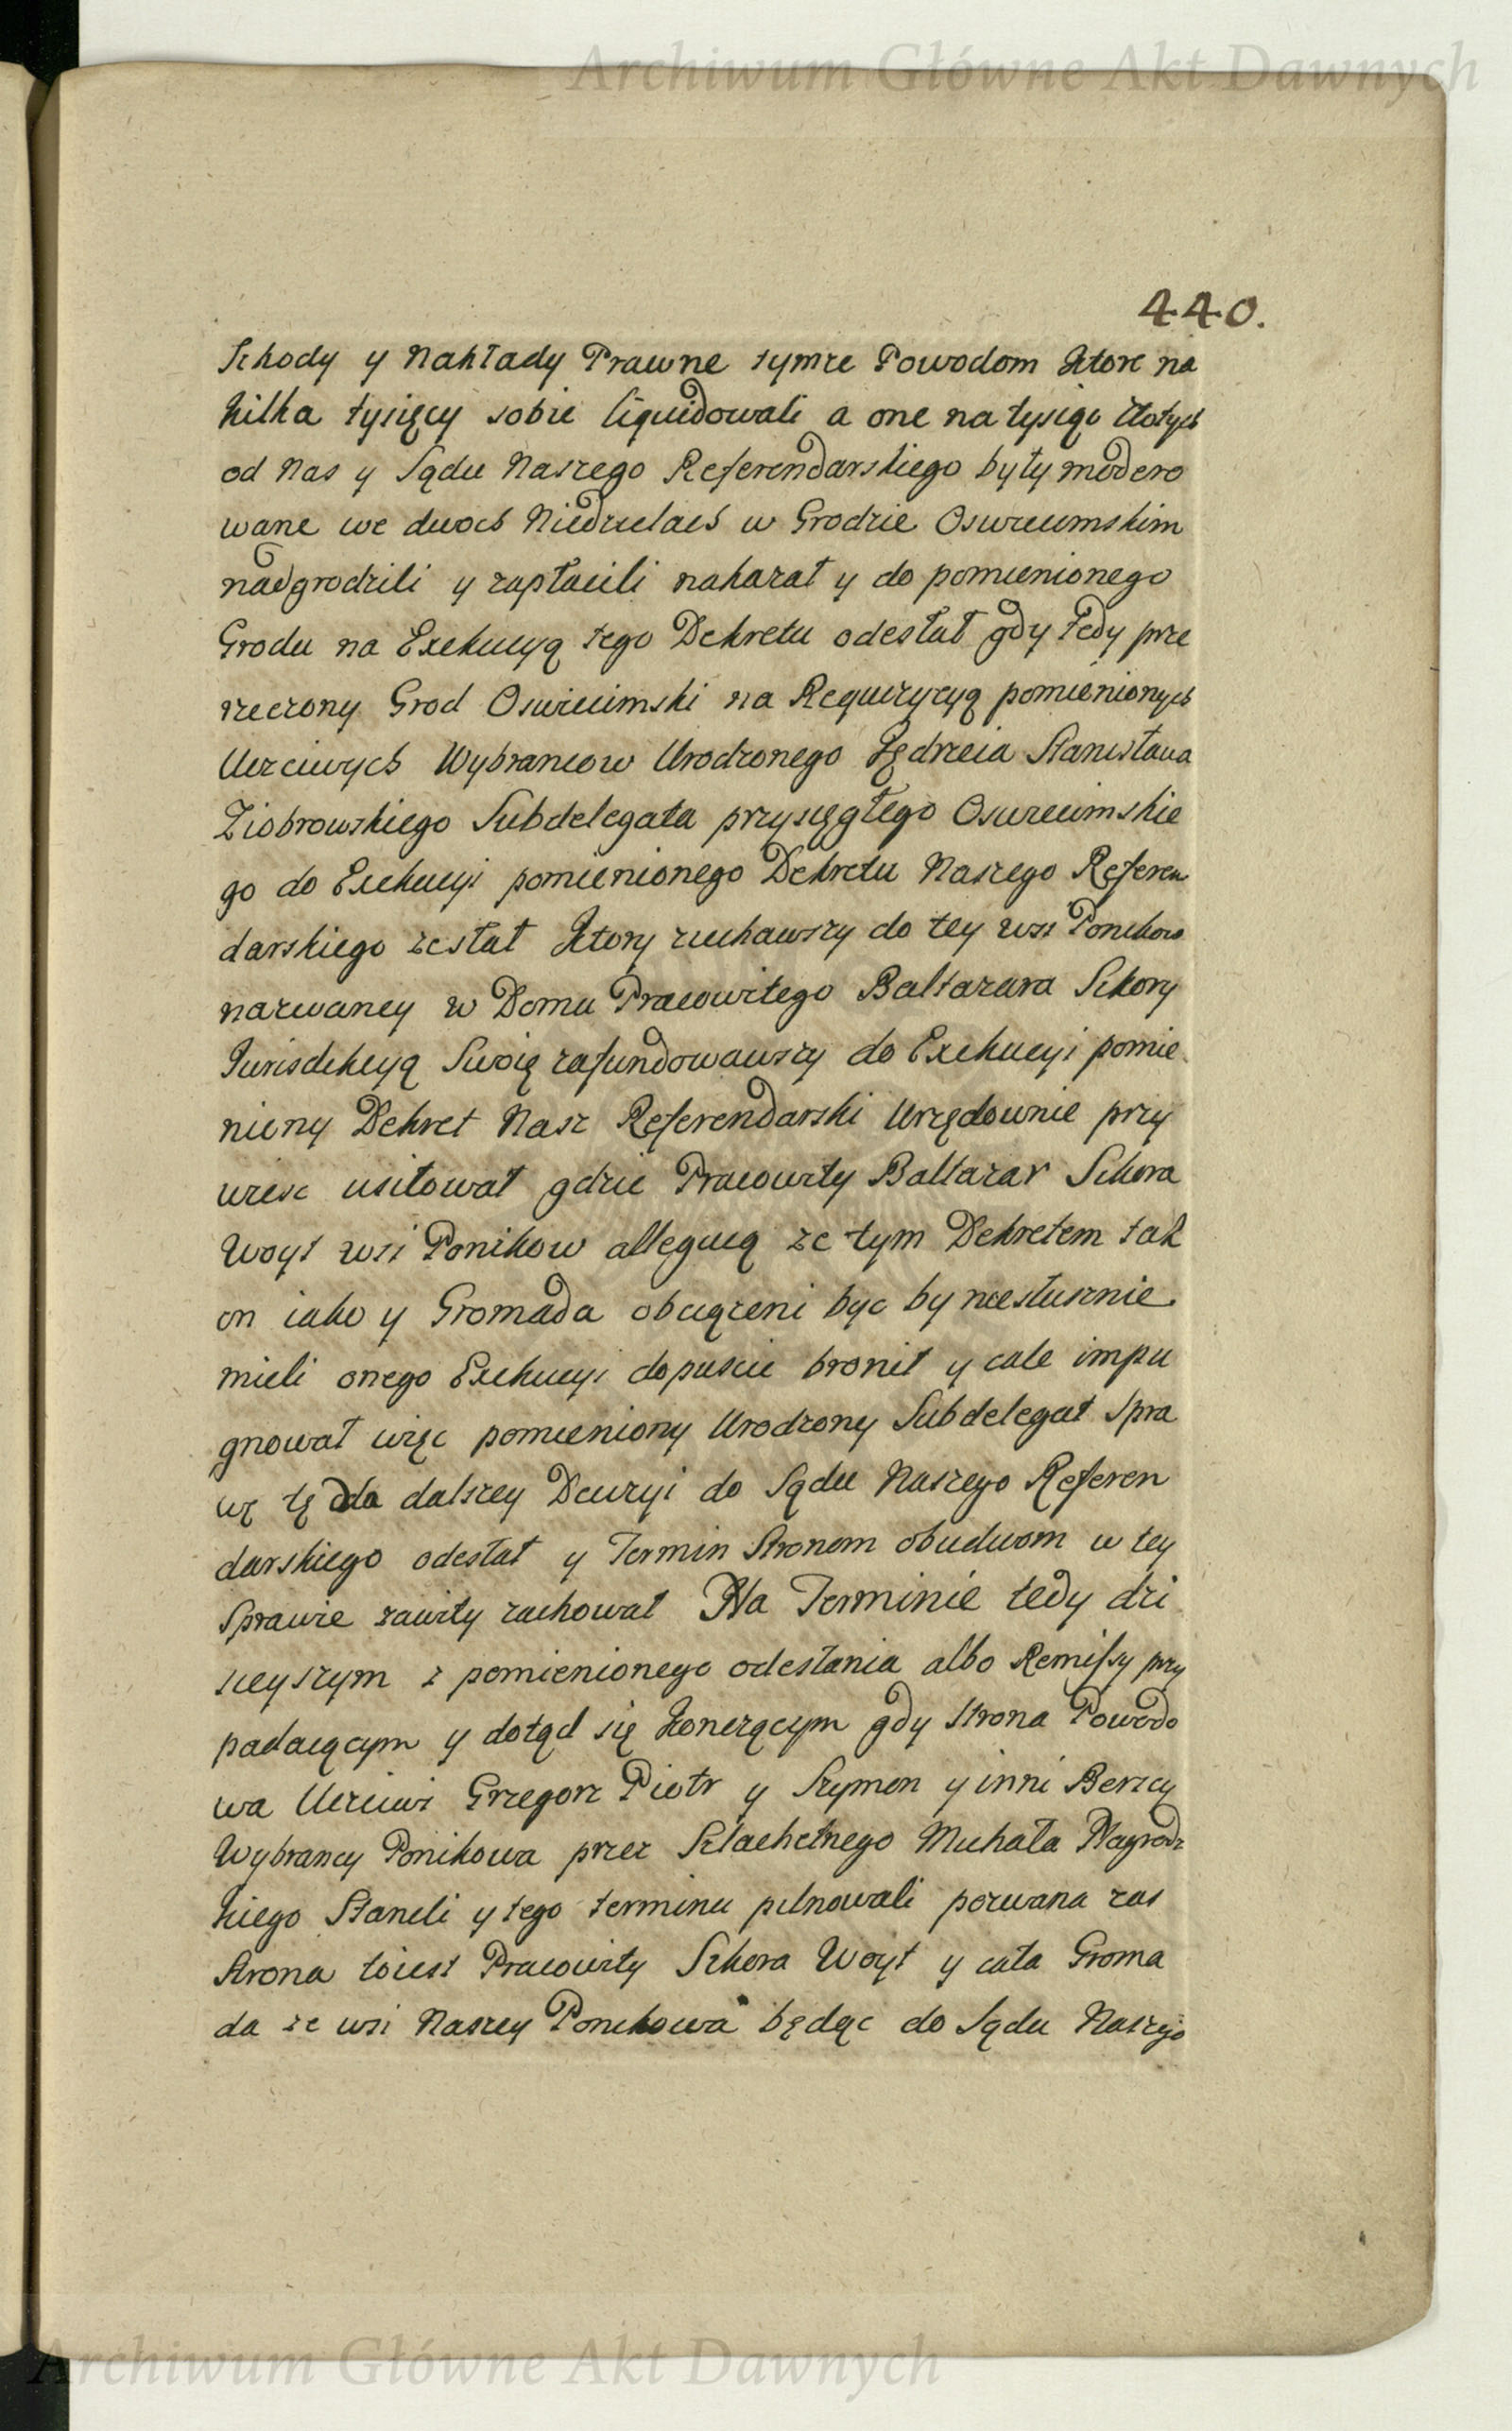 Archiwum Główne Akt Dawnych
440.
Szkody y Nakłady Prawne tymze Powodom ktore na
kilka tysięcy sobie liquidowali a one na tysiąc złotych
od Nas y Sądu Naszego Referendarskiego były modero
wane we dwoch Niedzielach w Grodzie Oswiecimskim
nadgrodzili y zapłacili nakazał y do pomienionego
Grodu na Exekucyą tego Dekretu odesłał gdy tedy prze
rzeczony Grod Oswiecimski na Requizycyą pomienionych
Uczciwych Wybrancow Urodzonego Jędrzeia Stanisława
Ziobrowskiego Subdelegata przysięgłego Oswiecimskie
go do Exekucyi pomienionego Dekretu Naszego Referen
darskiego zesłał ktory ziechawszy do tey wsi Ponikow
nazwaney w Domu Pracowitego Baltazara Sikory
Jurisdikcyą Swoię zafundowawszy do Exekucyi pomie
niony Dekret Nasz Referendarski Urzędownie przy
wiesc usiłował gdzie Pracowity Baltazar Sikora
Woyt wsi Ponikow alleguią ze tym Dekretem tak
on iako y Gromada obciązeni byc by niesłusznie
mieli onego Exekucyi dopuscic bronił y cale impu
gnował więc pomieniony Urodzony Subdelegat Spra
wę tę do dalszey Decyzyi do Sądu Naszego Referen
darskiego odesłał y Termin Stronom obudwom w tey
Sprawie zawity zachował Na Terminie tedy dzi
sieyszym z pomienionego odesłania albo Remissy przy
padaiącym y dotąd się konczącym gdy strona Powodo
wa Uczciwi Grzegorz Piotr y Szymon y inni Berscy
Wybrancy Ponikowa przez Szlachetnego Michała Nagrodz
kiego Staneli y tego terminu pilnowali pozwana zas
Strona toiest Pracowity Sikora Woyt y cała Groma
da ze wsi Naszey Ponikowa będąc do Sądu Naszego
Archiwum Główne Akt Dawnych